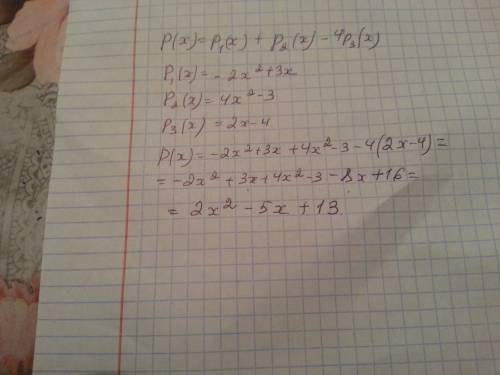 P(x) = P₁(x) + P₂(x) - 4P₃(x)
P₁(x) = - 2x² + 3x
P₂(x) = 4x² - 3
P₃(x) = 2x - 4
P(x) = -2x² + 3x + 4x² - 3 - 4(2x - 4) =
= -2x² + 3x + 4x² - 3 - 8x + 16 =
= 2x² - 5x + 13.